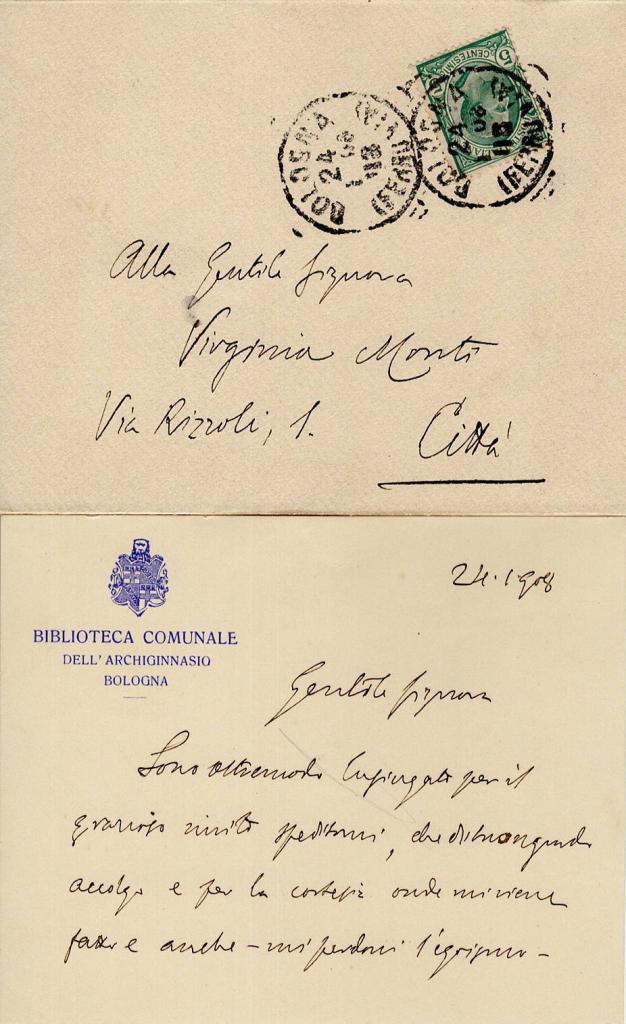 CENTESIMI
5
BOLOGNA
24
08
(FERROVIA)
BOLOGNA
24
08
(FERROVIA)
Alla Gentile Signora
Virginia Monti
Via Rizzoli, 1.
Città
BIBLIOTECA COMUNALE
DELL' ARCHIGINNASIO
BOLOGNA
24.1.908
Gentile Signora
Sono oltremodo lusingato per il
grazioso invito speditomi, che di buon grado
accolgo e per la cortesia onde mi viene
fatto e anche - mi perdoni l'egoismo -